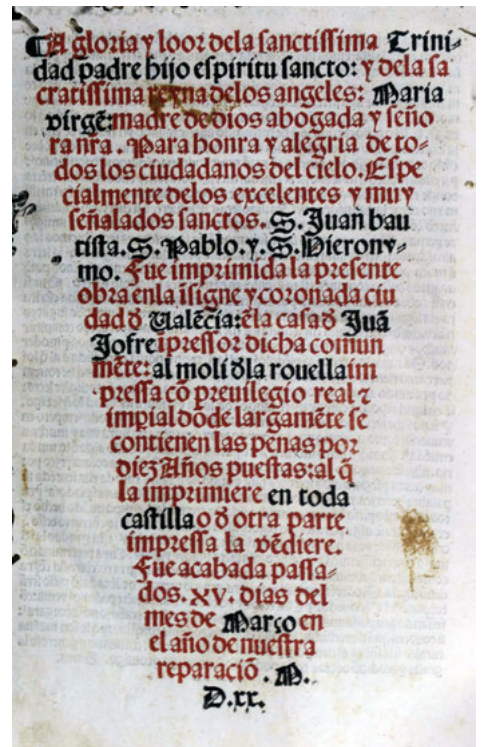 ¶A gloria y loor dela sanctissima Trini-
dad padre hijo espiritu sancto: y dela sa
cratissima reyna delos angeles: Maria
virgẽ: madre de dios abogada y seño
ra nr̃a. Para honra y alegria de to-
dos los ciudadanos del cielo. Espe
cialmente delos excelentes y muy
señalados sanctos. S. Juan bau
tista. S. Pablo. y. S. Hierony-
mo. Fue imprimida la presente
obra enla ĩsigne y coronada ciu
dad đ Ualẽcia: ẽla casa đ Juã
Jofre ĩpressor dicha comun
mẽte: al moli đla rouella im
pressa cõ preuilegio real ⁊
imꝑial dõde largamẽte se
contienen las penas por
diez Años puestas: al q̃
la imprimiere en toda
castilla o đ otra parte
impressa la vẽdiere.
Fue acabada passa-
dos. XV. dias del
mes de Março en
el año de nuestra
reparaciõ. M.
D.xx.